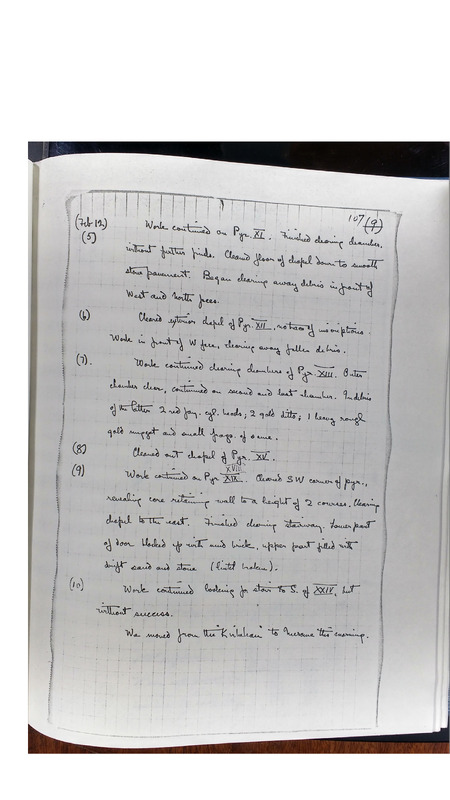 107 (9)
(Feb 12)
(5) Work continued on Pyr. XI. Finished clearing chamber,
without further finds. Cleared floor of chapel down to smooth
stone pavement. Began clearing away debris in front of
West and North faces.
(6) Cleared exterior chapel of Pyr. XII, no trace of inscriptions.
Work in front of W face, clearing away fallen debris.
(7). Work continued clearing chambers of Pyr. XIII. Outer
chamber clear, continued on second and last chamber. In debris
of the latter 2 red fay. cyl. beads; 2 gold ditto; 1 heavy rough
gold nugget and small frags. of same.
(8) Cleared out chapel of Pyr. XV.
XVIII
(9) Work continued on Pyr XIX. Cleared SW corner of pyr.,
revealing core retaining wall to a height of 2 courses. Clearing
chapel to the east. Finished clearing stairway. Lower part
of door blocked up with mud brick, upper part filled with
drift sand and stone (lintel broken).
(10) Work continued looking for stair to S. of XXIV, but
without success.
We moved from the to Meroe this evening.